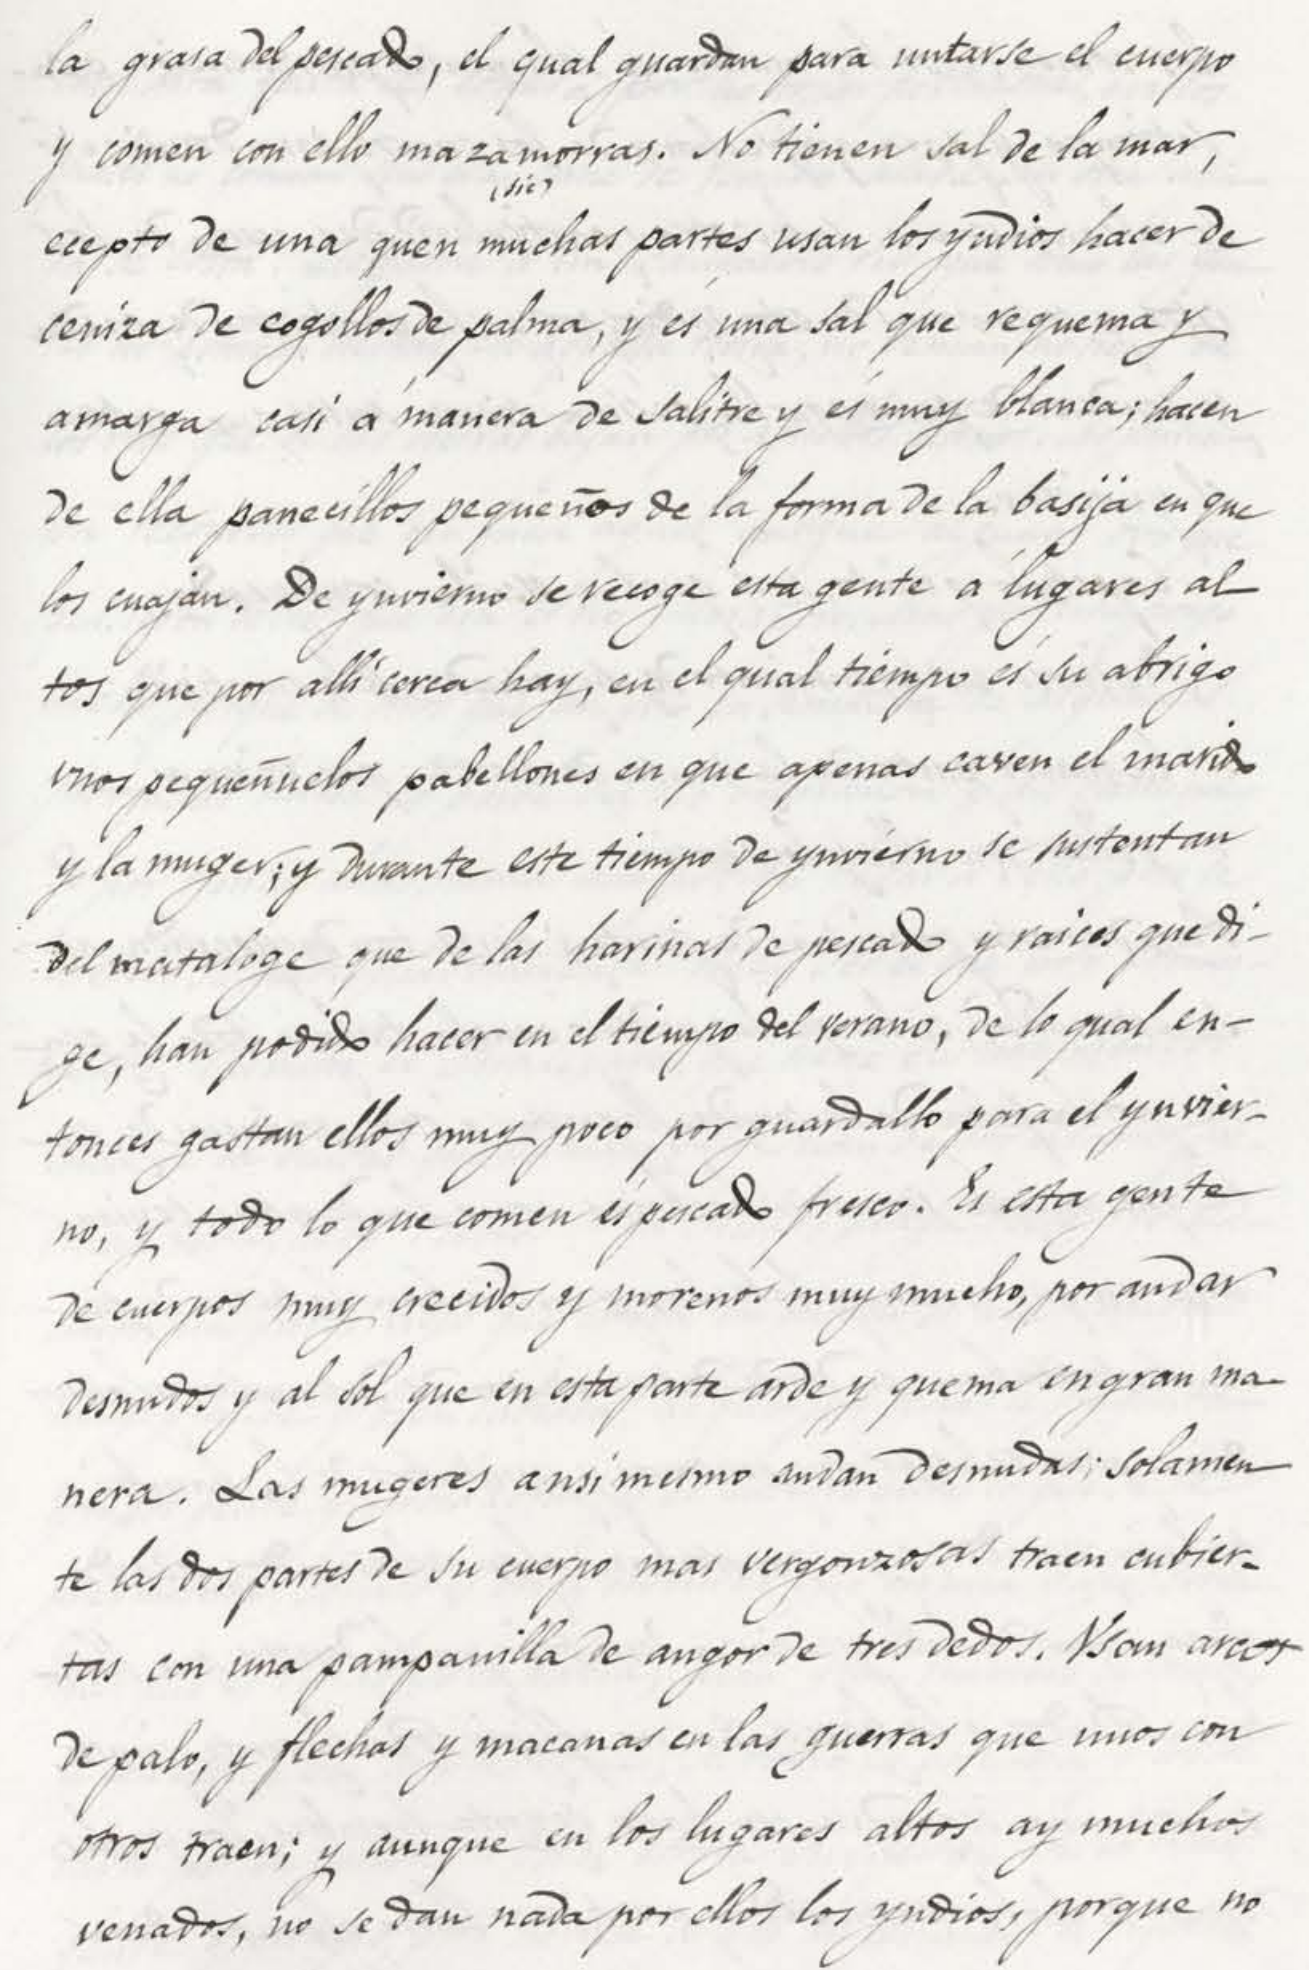 la grasa del pescado, el qual guardan para untarse el cuerpo
y comen con ello mazamorras. No tienen sal de la mar,
(sic)
ecepto de una quen muchas partes usan los yndios hacer de
ceniza de cogollos de palma, y és una sal que requema y
amarga casi á manera de salitre y és muy blanca; hacen
de ella panecillos pequeños de la forma de la basija en que
los cuajan. De ynvierno se recoge esta gente á lugares al
tos que por alli cerca hay, en el qual tiempo és su abrigo
vnos pequeñuelos pabellones en que apenas caven el marido
y la muger; y durante este tiempo de ynvierno se sustentan
del mataloge que de las harinas de pescado y raices que di-
ge, han podido hacer en el tiempo del verano, de lo qual en-
tonces gastan ellos muy poco por guardallo para el ynvier-
no, y todo lo que comen és pescado fresco. Es esta gente
de cuerpos muy crecidos y morenos muy mucho, por andar
desnudos y al sol que en esta parte arde y quema en gran ma-
nera. Las mugeres ansi mesmo andan desnudas; solamen
te las dos partes de su cuerpo mas vergonzosas traen cubier-
tas con una pampanilla de angor de tres dedos. Vsan arcos
de palo, y flechas y macanas en las guerras que unos con
otros traen; y aunque en los lugares altos ay muchos
venados, no se dan nada por ellos los yndios, porque no